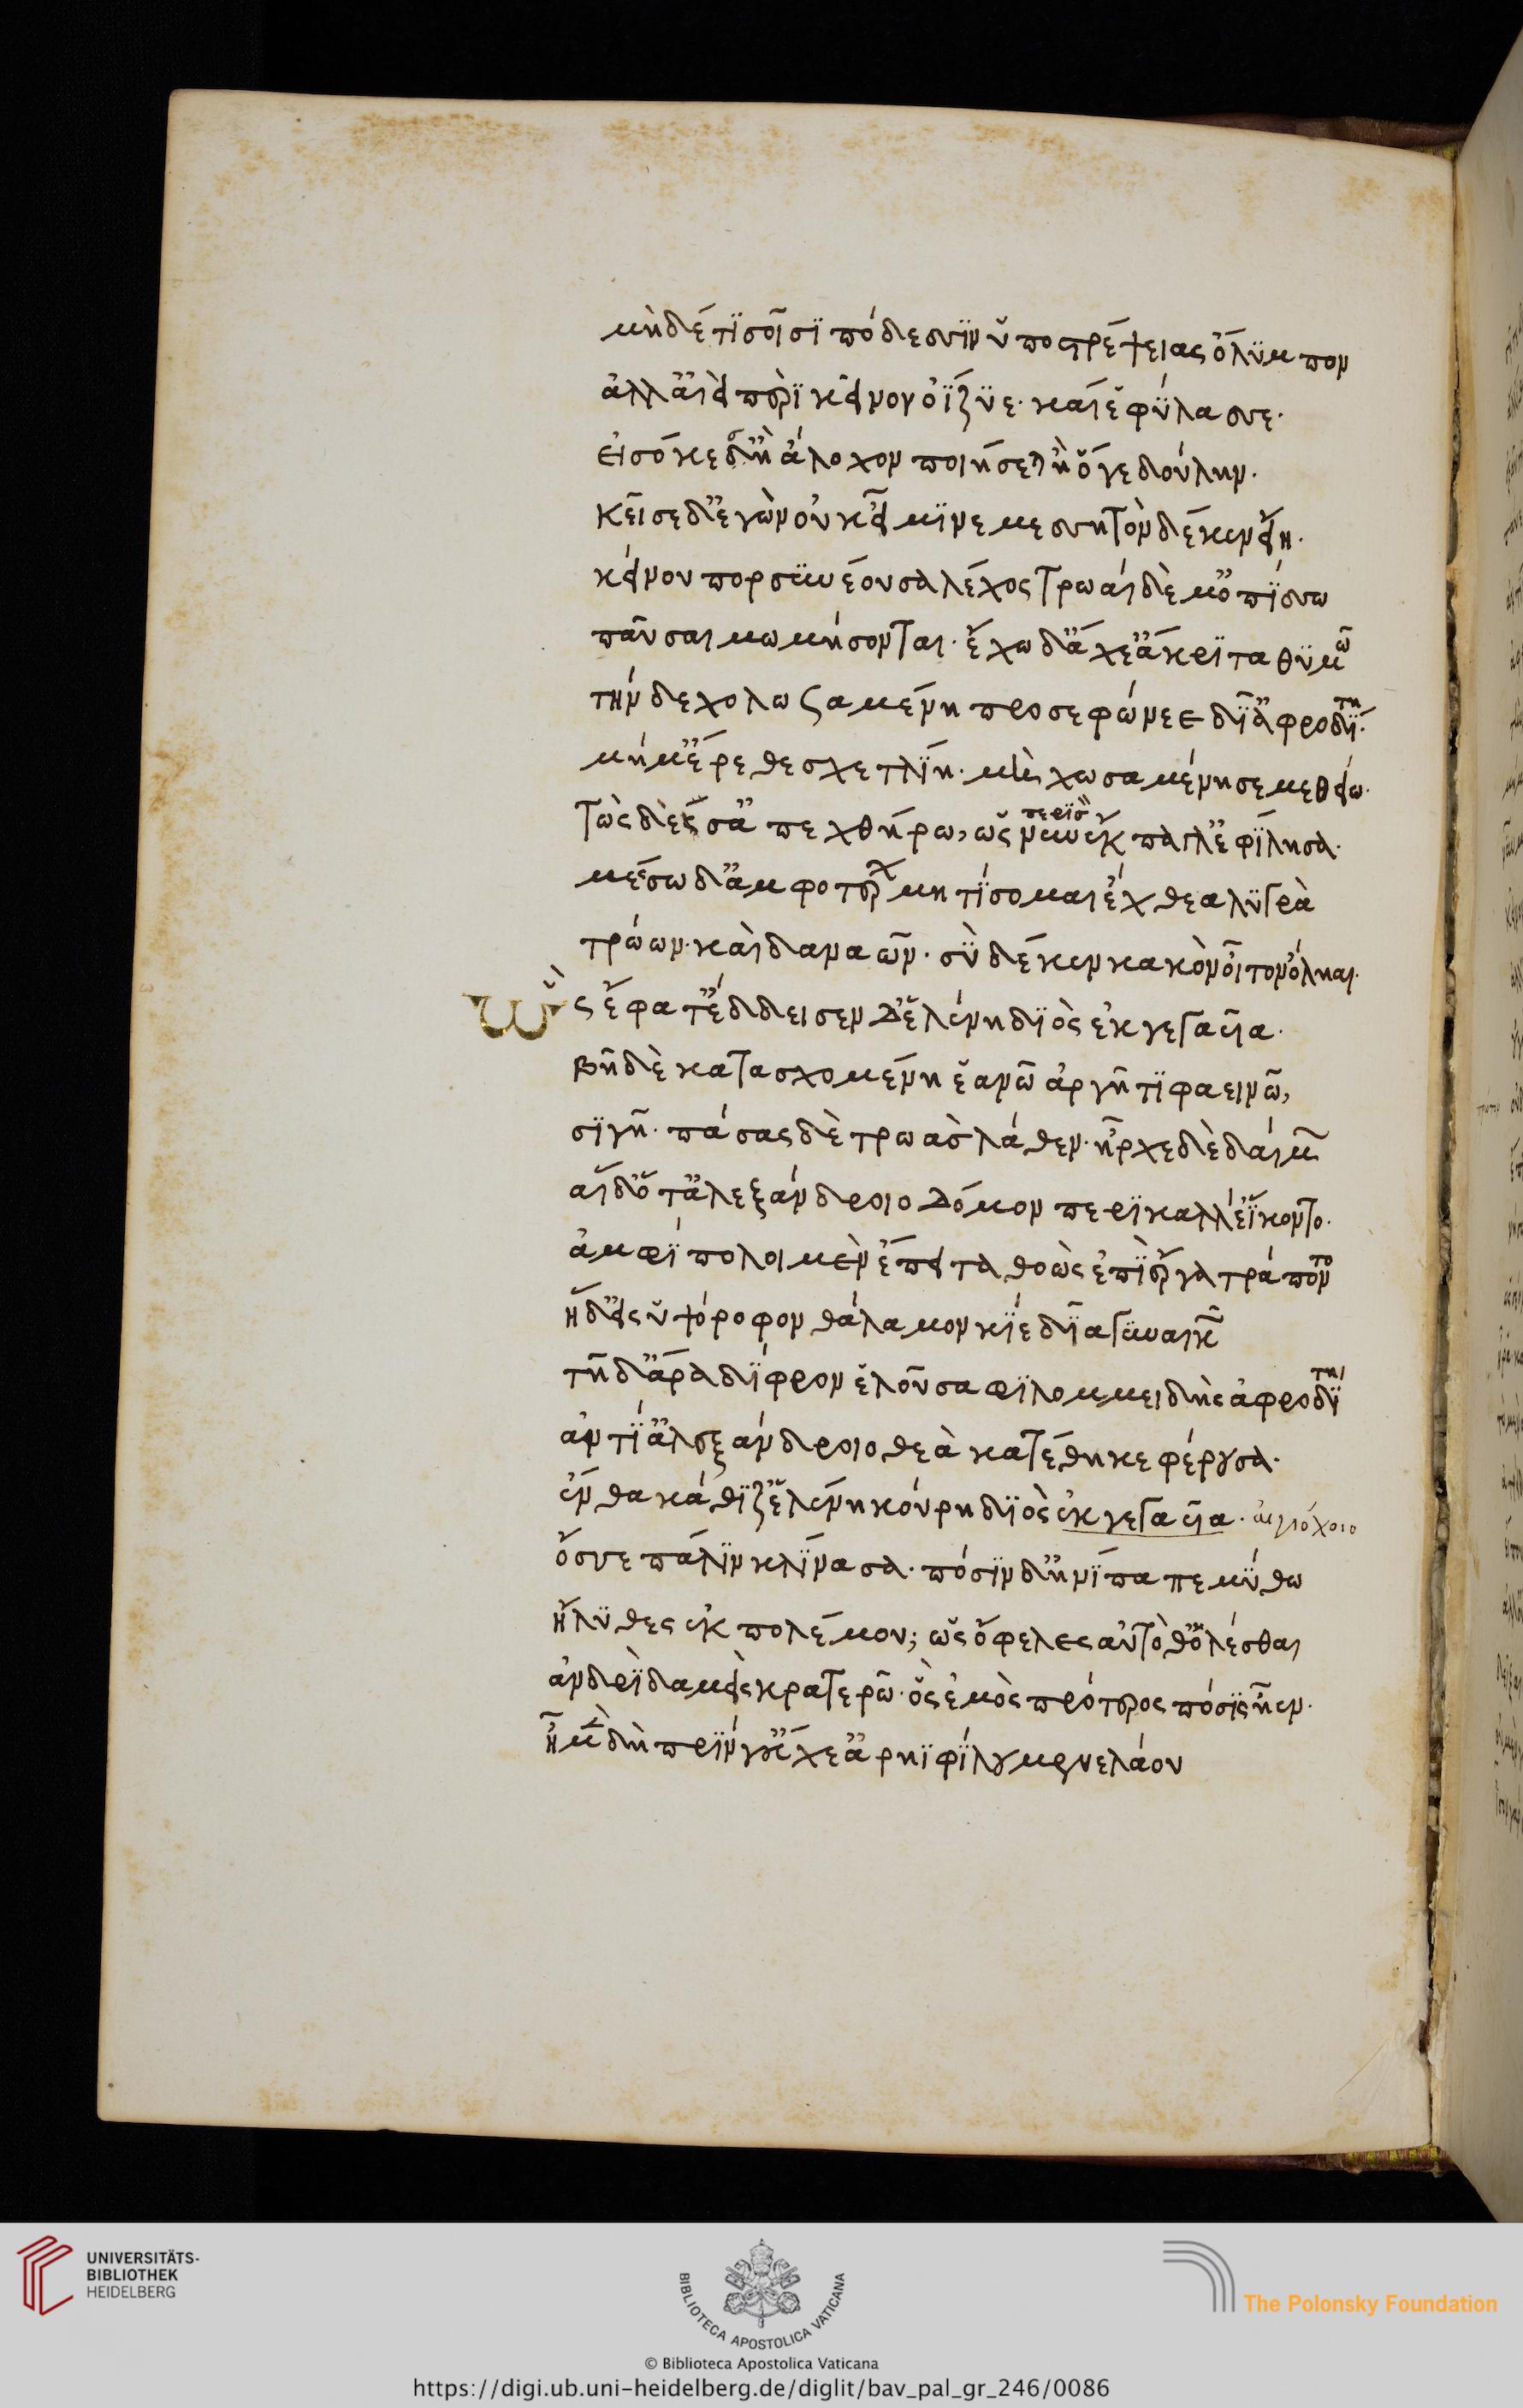 μηδέ τι σοῖσι πόδεσσιν ὑποστρέψειας ὄλυμπον
ἀλλ' αἰεὶ περὶ κεῖνον ὀΐζυε· καί ἑ φύλασσε·
εἰσόκε σ' ἢ ἄλοχον ποιήσεται ἢ ὅγε δούλην·
κεῖσε δ' ἐγὼν οὐκ εἶμι νεμεσσητὸν δέ κεν εἴη·
κείνου πορσυνέουσα λέχος τρωαὶ δέ μ' ὀπίσσω
πᾶσαι μωμήσονται· ἔχω δ' ἄχε' ἄκριτα θυμῶ
τὴν δὲ χολωσαμένη προσεφώνεε δῖ' ἀφροδίτη·
μή μ' ἔρεθε σχετλίη· μὴ χωσαμένη σε μεθείω·
τὼς δέ σ' ἀπεχθήρω, ὡς νῦν ἔκπαγλ' ἐφίλησα·
μέσσω δ' ἀμφοτέρων μητίσομαι ἔχθεα λυγρὰ
τρώων· καὶ δαναῶν· σὺ δέ κεν κακὸν οἶτον ὄληαι·
ὣς ἔφατ' ἔδδεισεν δ' ἑλένη διὸς ἐκγεγαυῖα·
βῆ δὲ κατασχομένη ἑανῶ ἀργῆτι φαεινῶ,
σιγῆ· πάσας δὲ τρωὰς λάθεν· ἦρχε δὲ δαίμων
αἱ δ' ὅτ' ἀλεξάνδροιο δόμον περικαλλέ' ἵκοντο·
ἀμφίπολοι μὲν ἔπειτα θοῶς ἐπὶ ἔργα τράποντο
ἡ δ' εἰς ὑψόροφον θάλαμον κίε δῖα γυναικῶν
τῆ δ' ἄρα δίφρον ἑλοῦσα φιλομμειδὴς ἀφροδίτη
ἀντί' ἀλεξάνδροιο θεὰ κατέθηκε φέρουσα·
ἔνθα κάθιζ' ἑλένη κούρη διὸς ἐκγεγαυῖα· αἰγιόχοιο
ὄσσε πάλιν κλίνασα· πόσιν δ' ἠνίπαπε μύθω
ἤλυθες ἐκ πολέμου; ὡς ὤφελες αὐτόθ' ὀλέσθαι
ἀνδρὶ δαμεὶς κρατερῶ· ὃς ἐμὸς πρότερος πόσις ἦεν·
ἦ μὲν δὴ πρίν γ' εὔχε' ἀρηϊφίλου μενελάου
UNIVERSITÄTS-
BIBLIOTHEK
HEIDELBERG
BIBLIOTECA APOSTOLICA VATICANA
The Polonsky Foundation
© Biblioteca Apostolica Vaticana
https://digi.ub.uni-heidelberg.de/diglit/bav_pal_gr_246/0086